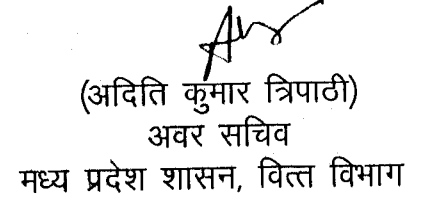 (अदिति कुमार त्रिपाठी)
अवर सचिव
मध्य प्रदेश शासन, वित्त विभाग